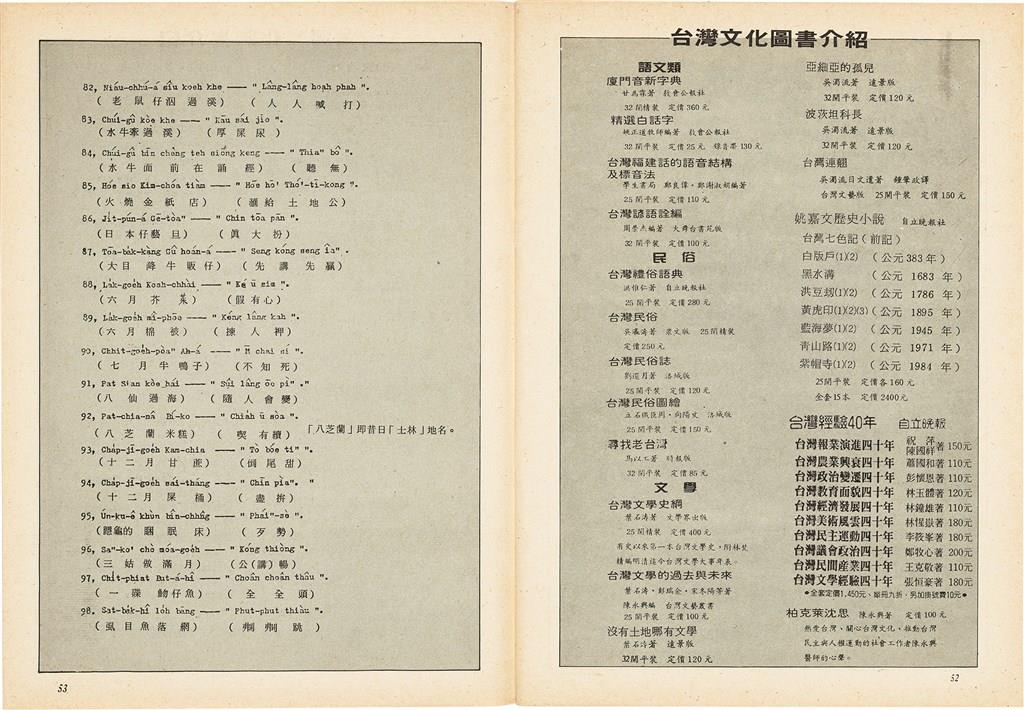 82, Niáu-chhú-á siû koeh khe —— " Lâng-lâng hoah phah ".
( 老 鼠仔泅 過溪 ) ( 人 人 喊 打 )
83, Chúi-gû kòe khe —— " Kāu sái jiō ".
( 水牛牽過溪 ) ( 厚 屎 尿 )
84, Chúi-gû bīn chêng teh siōng keng —— " Thiaⁿ bô ".
( 水 牛 面 前 在 誦 經 ) ( 聽 無 )
85, Hóe sio Kim-chóa tiàm —— " Hōe hō' Thó'-tī-kong ".
( 火 燒 金 紙 店 ) ( 滙給 土 地 公 )
86, Ji̍t-pún-á Gē-tòaⁿ —— " Chin tōa pān ".
( 日 本仔藝 旦 ) ( 眞 大 扮 )
87, Tōa-ba̍k-kàng Gû hoàn-á —— " Seng kóng seng iâⁿ ".
( 大目 降牛 販仔 ) ( 先 講 先 贏 )
88, La̍k-goe̍h Koah-chhài —— " Ké ū sim ".
( 六 月 芥 菜 ) ( 假有心 )
89, La̍k-goe̍h mî-phōe —— " Kéng lâng kah ".
( 六 月 棉 被 ) ( 揀 人 押 )
90, Chhit-goe̍h-pòaⁿ Ah-á —— " M̄ chai sí ".
( 七 月 半 鴨子 ) ( 不知 死 )
91, Pat Sian kòe hái —— " Sûi lâng ōe pìⁿ "."
( 八 仙 過 海 ) ( 隨 人 會 變 )
92, Pat-chia-nâ Bí-ko —— " Chia̍h ū sòa ".
( 八 芝 蘭 米糕 ) ( 喫 有續 ) 「八芝蘭」即昔日「士林」地名。
93, Cha̍p-jī-goe̍h Kam-chia —— " Tò bóe tiⁿ ".
( 十 二 月 甘 蔗 ) ( 倒 尾 甜 )
94, Cha̍p-jī-goe̍h sái-tháng —— " Chīn piàⁿ". "
( 十 二 月 屎 桶 ) ( 盡 拚 )
95, Ún-ku-ê khùn bîn-chhn̂g —— " Pháiⁿ-sè ".
(隱龜的 睏 眠 床 ) ( 歹 勢 )
96, Saⁿ-ko' chò móa-goe̍h —— " Kong thiòng ".
( 三 姑 做 滿 月 ) ( 公(講) 暢 )
97, Chi̍t-phiat But-á-hî —— " Choân choân thâu ".
( 一 碟 魩仔魚 ) ( 全 全 頭 )
98, Sat-ba̍k-hî lo̍h bāng —— " Phut-phut thiàu ".
( 虱 目 魚 落 網 ) ( 跳 )
53
台灣文化圖書介紹
語文類
廈門音新字典
甘為霖著 教會公報社
32開精裝 定價360元
精選白話字
姚正道牧師編著 教會公報社
32開平裝 定價25元 錄音帶130元
台灣福建話的語音結構
及標音法
學生書局 鄭良偉・鄭謝淑娟編著
25開平裝 定價110元
台灣諺語詮編
周榮杰編著 大舞台書苑版
32開平裝 定價100元
民 俗
台灣禮俗語典
洪惟仁著 自立晚報社
25開平裝 定價280元
台灣民俗
吳瀛濤著 眾文版 25開精裝
定價250元
台灣民俗誌
劉還月著 洛城版
25開平裝 定價120元
台灣民俗圖繪
立石鐵臣周・向陽文 洛城版
25開平裝 定價150元
尋找老台灣
馬以工著 時報版
32開平裝 定價85元
文 學
台灣文學史綱
葉石濤著 文學界出版
25開精裝 定價400元
有史以來第一本台灣文學史,附林梵
精編明清迄今台灣文學大事年表。
台灣文學的過去與未來
葉石濤・彭瑞金・宋冬陽等著
陳永興編 台灣文藝叢書
25開平裝 定價100元
沒有土地哪有文學
葉石濤著 遠景版
32開平裝 定價120元
亞細亞的孤兒
吳濁流著 遠景版
32開平裝 定價120元
波茨坦科長
吳濁流著 遠景版
32開平裝 定價120元
台灣連翹
吳濁流日文遺著 鍾肇政譯
台灣文藝版 25開平裝 定價150元
姚嘉文歷史小說 自立晚報社
台灣七色記(前記)
白版戶(1)(2) (公元383年)
黑水溝 (公元 1683 年)
洪豆劫(1)(2) (公元 1786 年)
黃虎印(1)(2)(3) (公元 1895 年)
藍海夢(1)(2) (公元 1945 年)
青山路(1)(2) (公元 1971 年)
紫帽寺(1)(2) (公元 1984 年)
25開平裝 定價各160元
全套15本 定價2400元
台灣經驗40年 自立晚報
台灣報業演進四十年 祝萍 陳國祥著 150元
台灣農業興衰四十年 蕭國和著 110元
台灣政治變遷四十年 彭懷恩著 110元
台灣教育面貌四十年 林玉體著 120元
台灣經濟發展四十年 林鐘雄著 110元
台灣美術風雲四十年 林惺嶽著 180元
台灣民主運動四十年 李筱峯著 180元
台灣議會政治四十年 鄭牧心著 200元
台灣民間產業四十年 王克敬著 110元
台灣文學經驗四十年 張恒豪著 180元
●全套定價1,450元、郵冊九折,另加掛號費10元●
柏克萊沈思 陳永興著 定價100元
熱愛台灣、關心台灣文化、推動台灣
民主與人權運動的社會工作者陳永興
醫師的心聲。
52